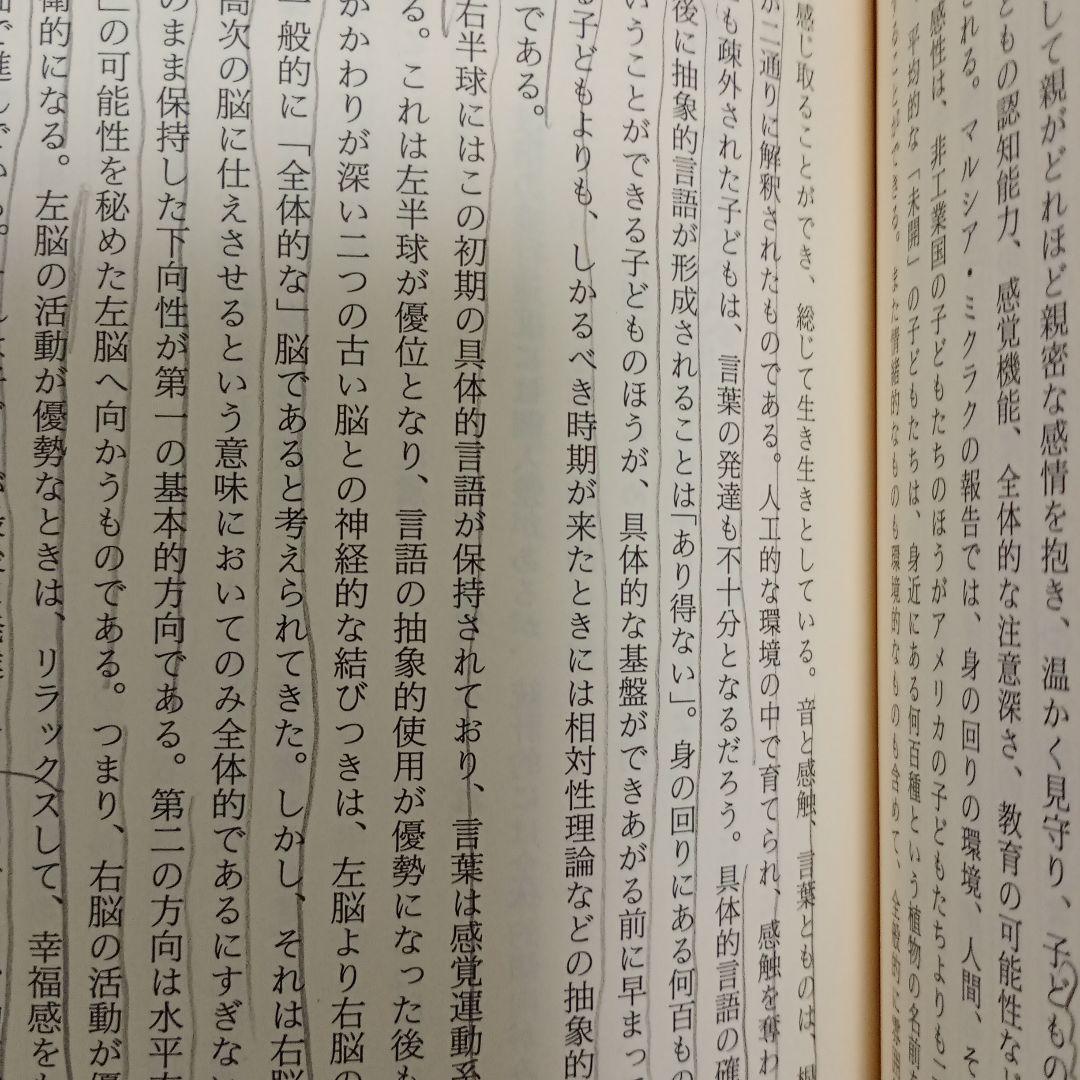 して親がどれほど親密な感情を抱き、温かく見守り、子どもの
どもの認知能力、感覚機能、全体的な注意深さ、教育の可能性な
れる。マルシア・ミクラクの報告では、身の回りの環境、人間、そ
感性は、非工業国の子どもたちのほうがアメリカの子どもたちよりも
平均的な「未開」の子どもたちは、身近にある何百種という植物の名前
ることができる。また情緒的なものも環境的なものも含めて、全般的に
感じ取ることができ、総じて生き生きとしている。音と感触、言葉とものは、
が二通りに解釈されたものである。人工的な環境の中で育てられ、感触を奪わ
も疎外された子どもは、言葉の発達も不十分となるだろう。具体的言語の確
後に抽象的言語が形成されることは「あり得ない」。身の回りにある何百もの
いうことができる子どものほうが、具体的な基盤ができあがる前に早まって
る子どもよりも、しかるべき時期が来たときには相対性理論などの抽象的
である。
右半球にはこの初期の具体的言語が保持されており、言葉は感覚運動系
る。これは左半球が優位となり、言語の抽象的使用が優勢になった後も
かかわりが深い二つの古い脳との神経的な結びつきは、左脳より右脳の
一般的に「全体的な」脳であると考えられてきた。しかし、それは右脳
高次の脳に仕えさせるという意味においてのみ全体的であるにすぎない
のまま保持した下向性が第一の基本的方向である。第二の方向は水平
」の可能性を秘めた左脳へ向かうものである。つまり、右脳の活動が優
衛的になる。左脳の活動が優勢なときは、リラックスして、幸福感を